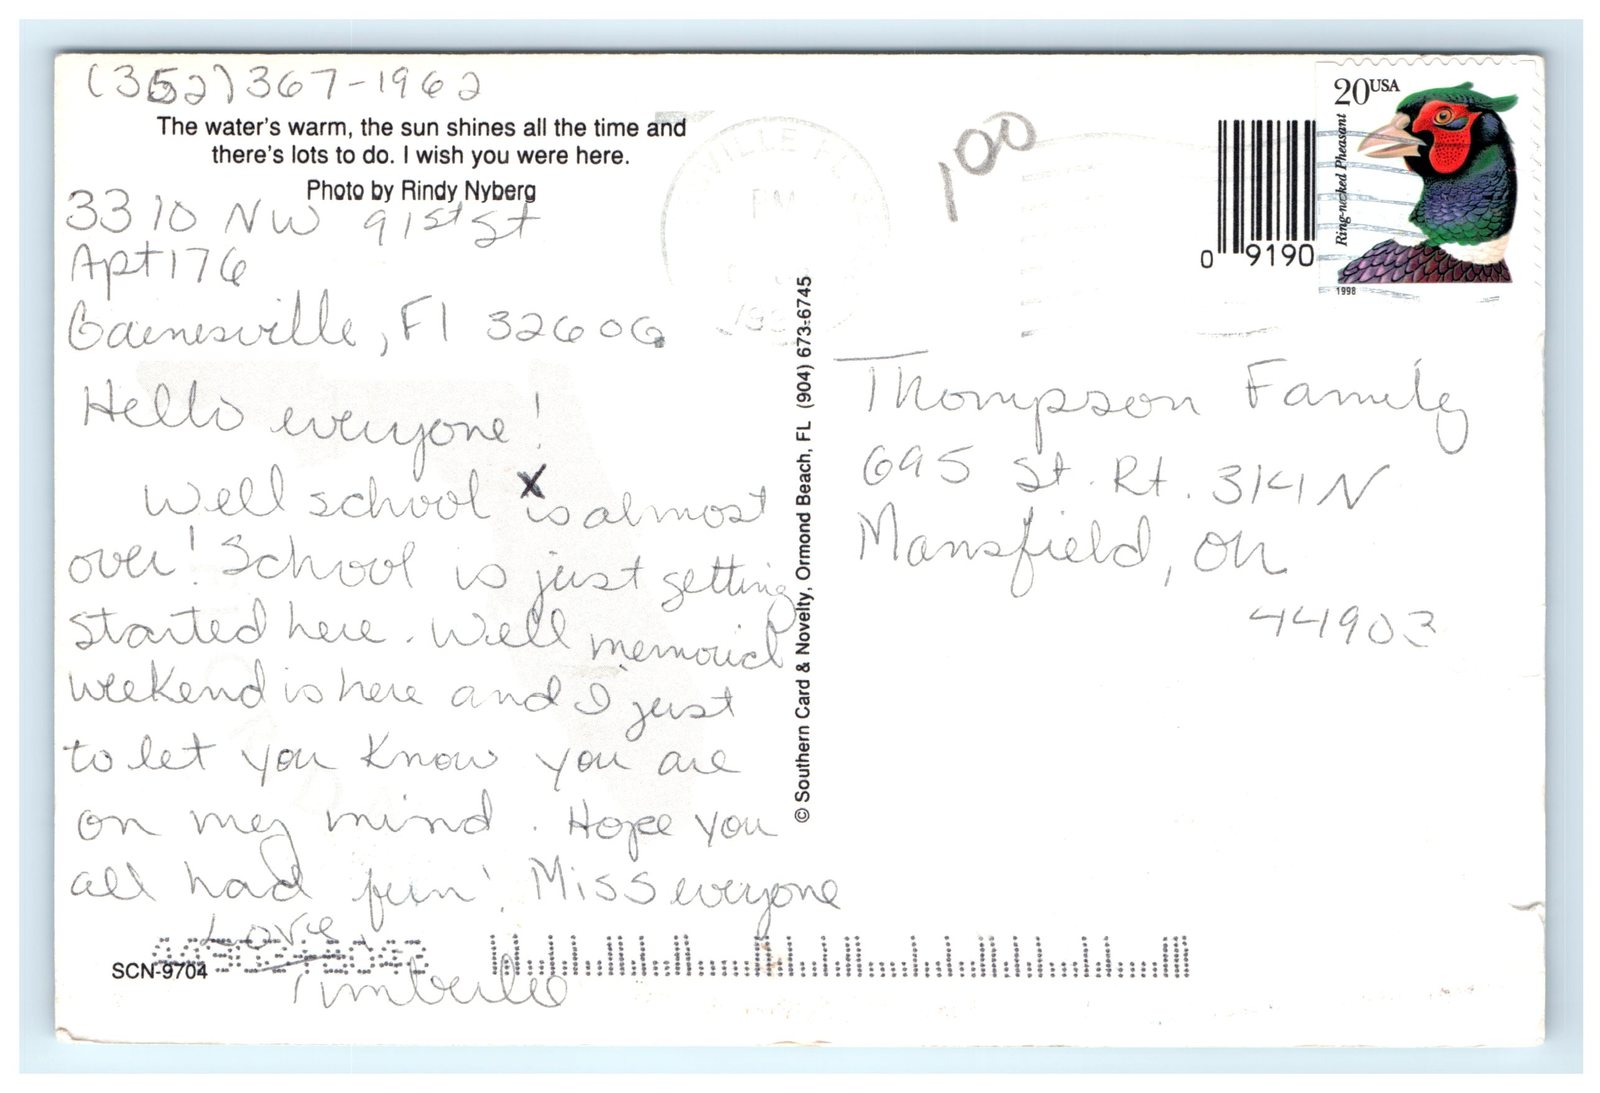 (352) 367-1962
The water's warm, the sun shines all the time and
there's lots to do. I wish you were here.
Photo by Rindy Nyberg
3310 NW 91st St
Apt 176
Gainesville, Fl 32606
Hello everyone!
Well school x is almost
over! School is just getting
started here. Well memorial
weekend is here and I just
to let you know you are
on my mind. Hope you
all had fun! Miss everyone
Love
Timberlie
SCN-9704
© Southern Card & Novelty, Ormond Beach, FL (904) 673-6745
PM
100
0 9190
20USA
Ring-necked Pheasant
1998
Thompson Family
695 St. Rt. 314 N
Mansfield, OH
44903